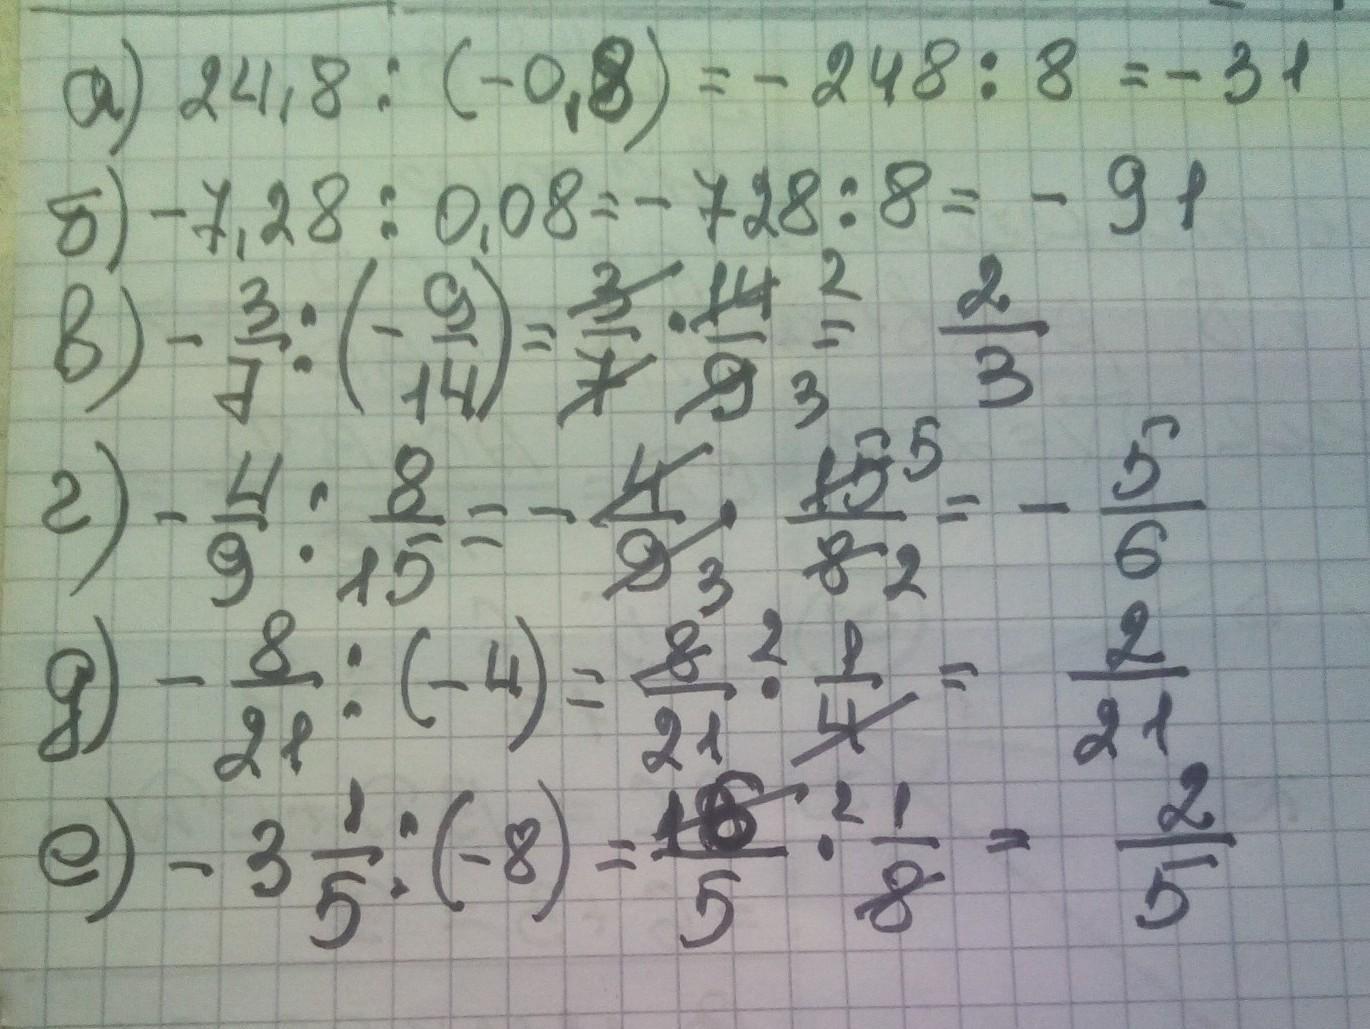 а) 24,8 : (-0,8) = - 248 : 8 = - 31
б) - 7,28 : 0,08 = - 728 : 8 = - 91
в) - 3/7 : (- 9/14) = 3/7 · 14/9 2 3 = 2/3
г) - 4/9 : 8/15 = - 4/9 3 · 15/8 5 2 = - 5/6
д) - 8/21 : (- 4) = 8/21 2 · 1/4 = 2/21
е) - 3 1/5 : (- 8) = 16/5 2 · 1/8 = 2/5